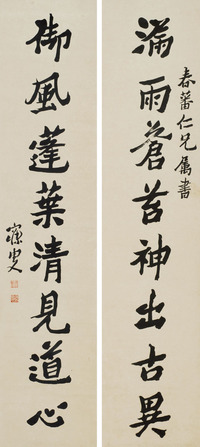 春蕃仁兄属書
漏雨蒼苔神出古異
御風蓬葉清見道心
寐叟